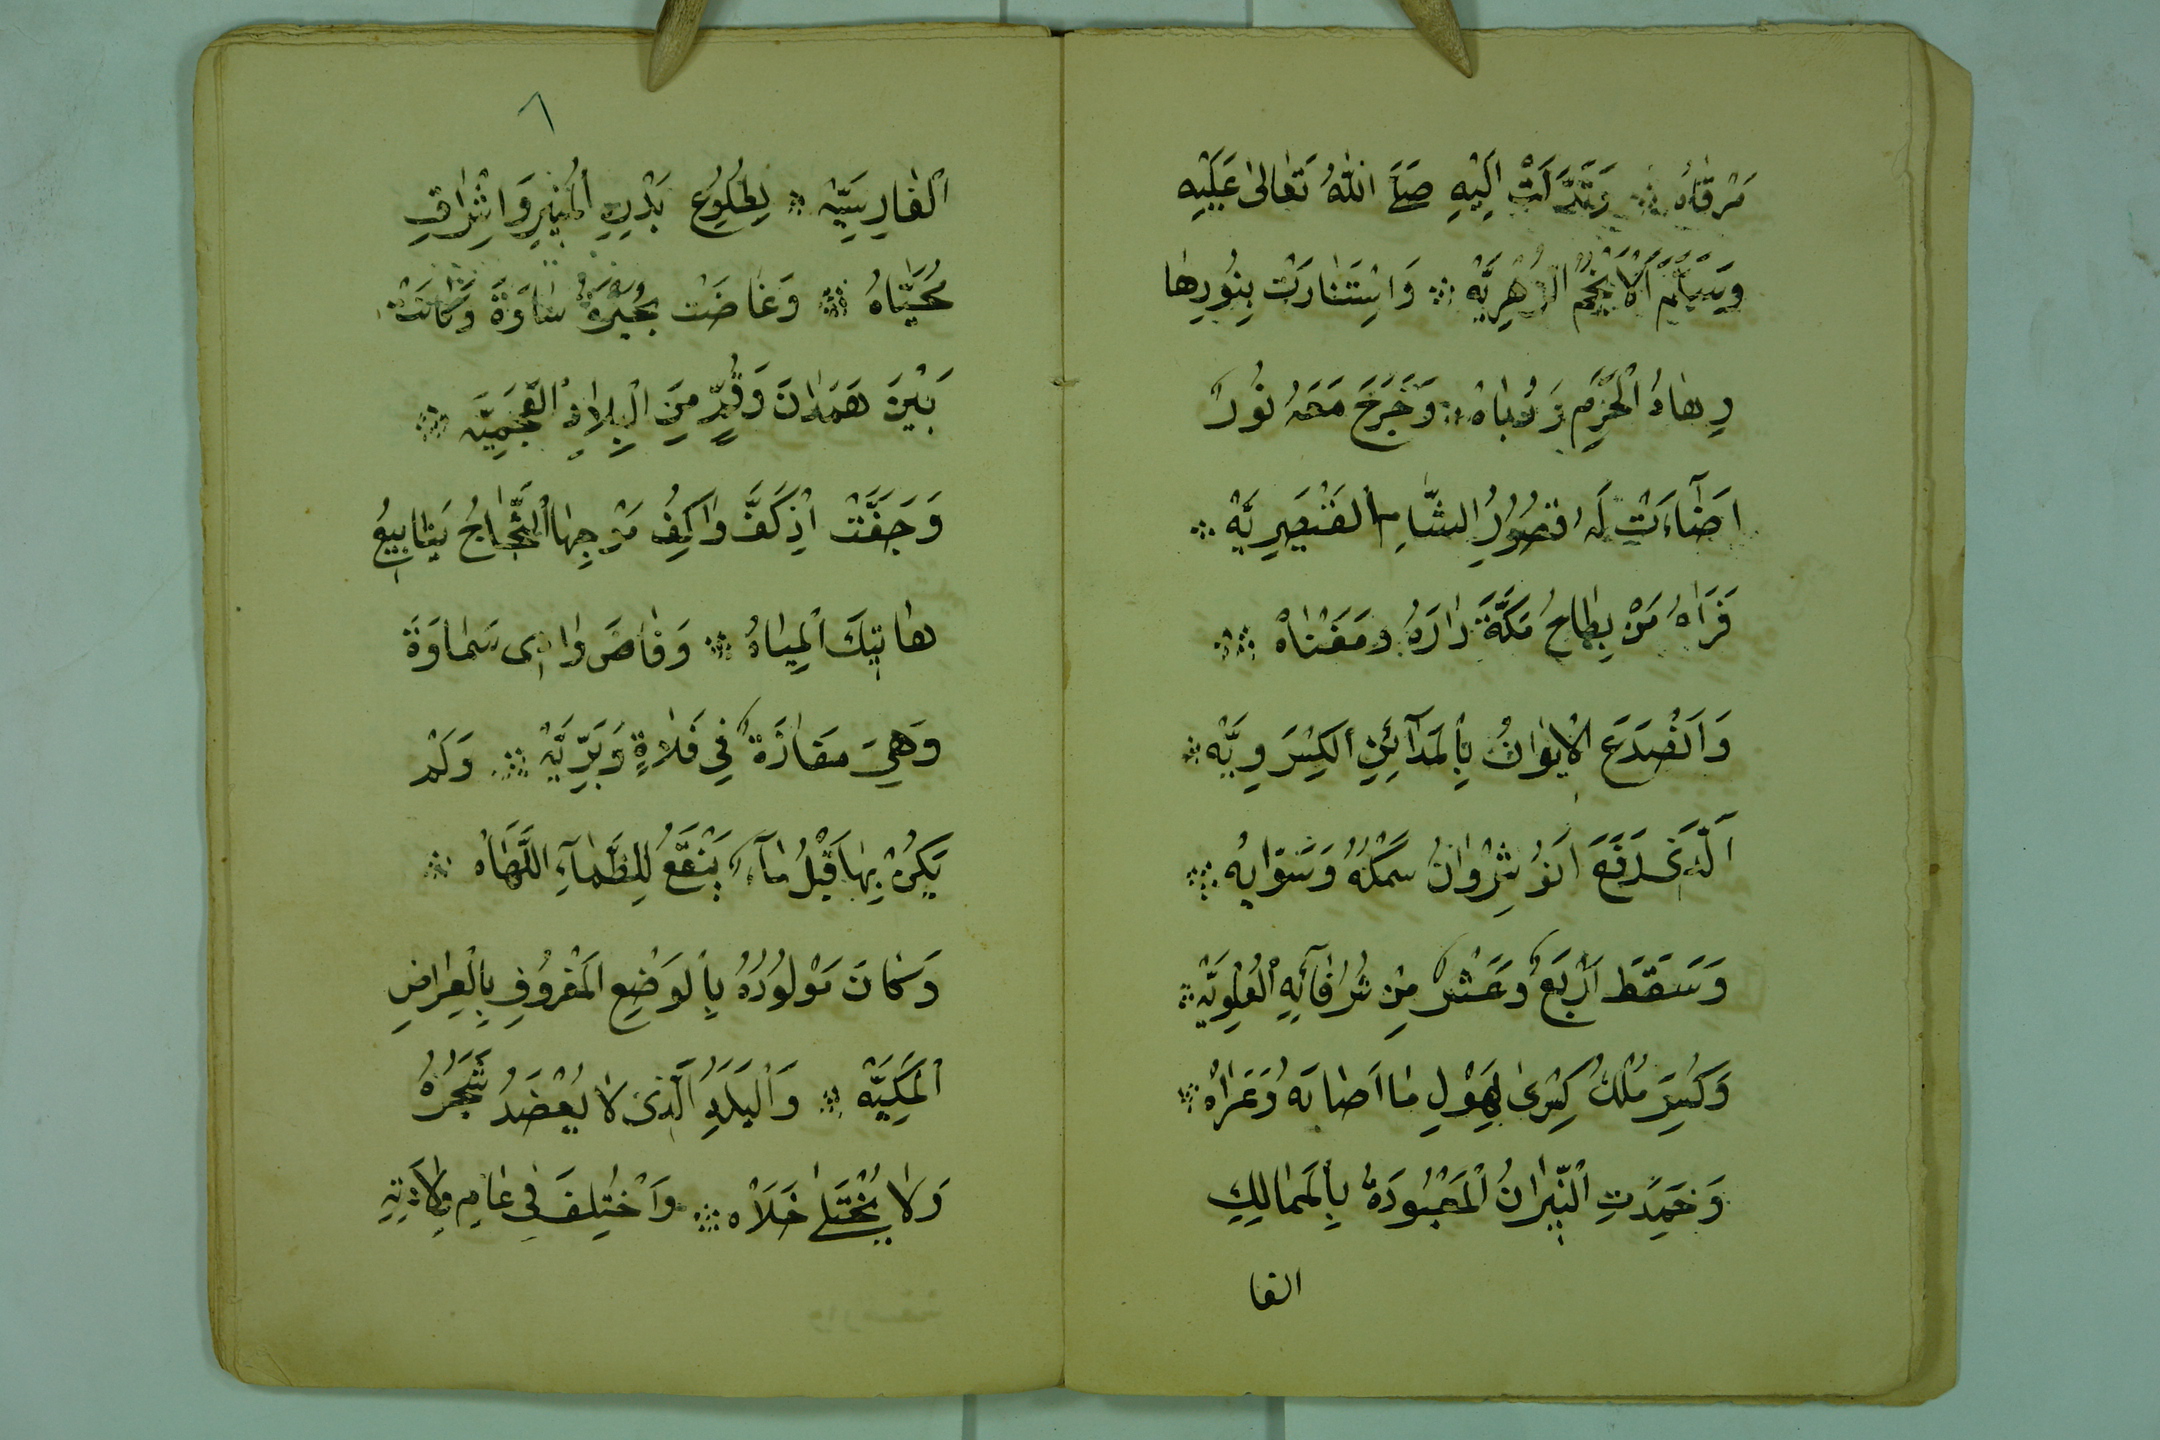 مَرْقَاهُ ۞ وَتَدَلَّتْ اِلَيْهِ صَلَّى اللّٰهُ تَعَالٰى عَلَيْهِ
وَسَلَّمَ اَلْاَنْجُمُ الزُّهْرِيَّهْ ۞ وَاسْتَنَارَتْ بِنُورِهَا
وِهَادُ الْحَرَمِ وَرُبَاهْ ۞ وَخَرَجَ مَعَهُ نُورٌ
اَضَآءَتْ لَهُ قُصُورُ الشَّامِ الْقَيْصَرِيَّهْ ۞
فَرَاٰهُ مَنْ بِطَاحُ مَكَّةَ دَارُهُ وَمَغْنَاهْ ۞
وَانْصَدَعَ الْاِيوَانُ بِالْمَدَآئِنِ الْكِسْرَوِيَّهْ ۞
اَلَّذِى رَفَعَ اَنُوشِرْوَانُ سَمْكَهُ وَسَوَّايهُ ۞
وَسَقَطَ اَرْبَعٌ وَعَشْرٌ مِنْ شُرُفَاتِهِ الْعُلْوِيَّهْ ۞
وَكُسِرَ مُلْكُ كِسْرٰى لِهَوْلِ مَا اَصَابَهُ وَعَرَاهْ ۞
وَخَمِدَتِ النِّيرَانُ الْمَعْبُودَةُ بِالْمَمَالِكِ
الفا
٨
الْفَارِسِيَّهْ ۞ لِطُلُوعِ بَدْرِهِ الْمُنِيرِ وَاِشْرَاقِ
مُحَيَّاهُ ۞ وَغَاضَتْ بُحَيْرَةُ سَاوَةَ وَكَانَتْ
بَيْنَ هَمَدَانَ وَقُمٍّ مِنَ الْبِلَادِ الْعَجَمِيَّهْ ۞
وَجَفَّتْ اِذْ كَفَّ وَاكِفُ مَوْجِهَا الثَّجَّاجُ يَنَابِيعُ
هَاتِيكَ الْمِيَاهُ ۞ وَفَاضَ وَادِى سَمَاوَةَ
وَهِىَ مَفَازَةٌ فِى فَلَاةٍ وَبَرِّيَّهْ ۞ وَلَمْ
يَكُنْ بِهَا قَبْلُ مَآءٌ يَنْقَعُ لِلظَّمْاٰءِ اللَّهَاهْ ۞
وَكَانَ مَوْلُودُهُ بِالْوَضِعِ الْمَعْرُوفِ بِالْعِرَاضِ
الْمَكِّيَّهْ ۞ وَالْبَلَدِ الَّذِى لَا يُعْضَدُ شَجَرُهُ
وَلَا يُخْتَلٰى خَلَاهْ ۞ وَاخْتُلِفَ فِى عَامِ وِلَادَتِهِ